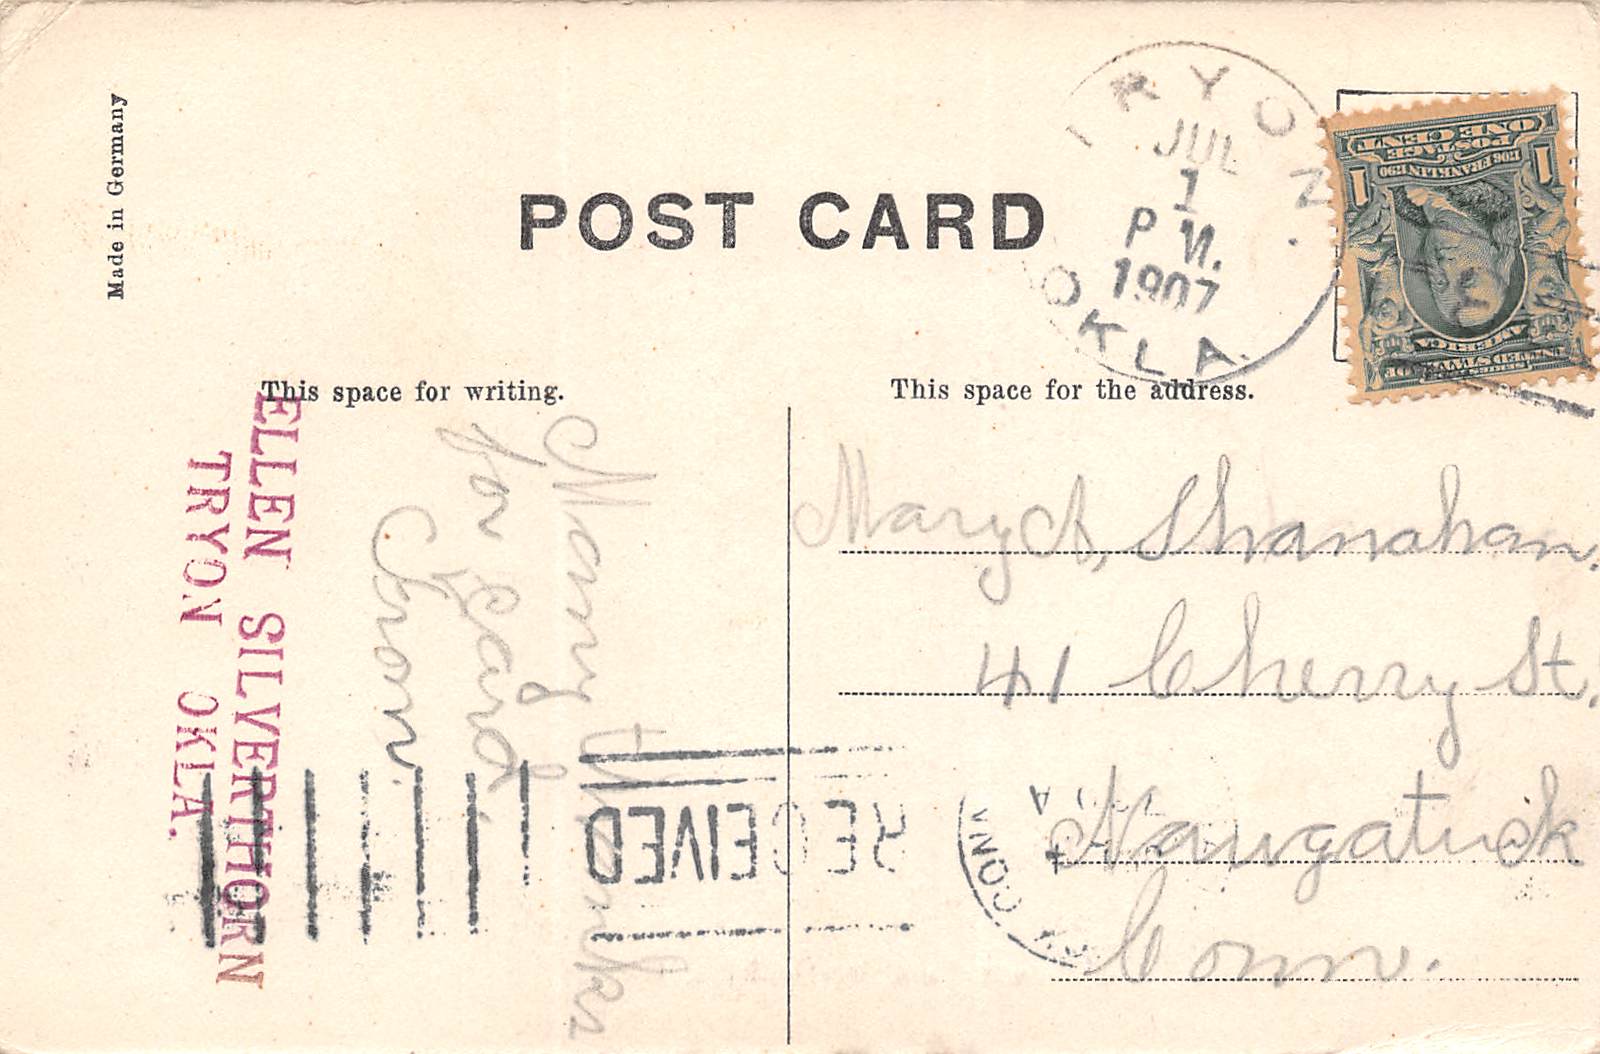 Made in Germany
POST CARD
TRYON.
JUL
1
P M.
1907
OKLA.
ONE CENT
POSTAGE
1706 FRANKLIN 1790
1 1
UNITED STATES OF
AMERICA
SERIES 1902
This space for writing.
This space for the address.
Many thanks
for card.
From.
ELLEN SILVERTHORN
TRYON OKLA.
Mary A, Shanahan.
41 Cherry St.
Naugatuck
Conn.
RECEIVED
CONN